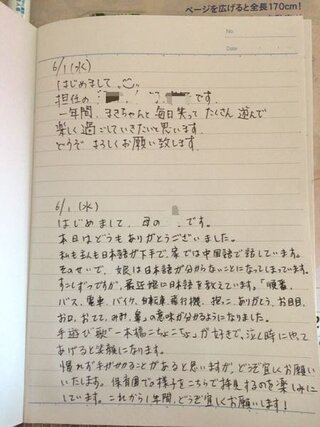 ページを広げると全長170cm!
No.
Date
6/1(水)
はじめまして
担任の です。
一年間、まきちゃんと毎日笑って たくさん 遊んで
楽しく過ごしていきたいと思います
どうぞ よろしくお願い致します。
6/1(水)
はじめまして、母の です。
本日はどうもありがとうございました。
私も主人も日本語が下手で、家では中国語で話しています。
そのせいで、娘は日本語が分からないことになってしまっています。
すこしずつですが、最近娘に日本語を教えています。「順番、
バス、電車、バイク、自転車、飛行機、抱っこ、ありがとう、お目目、
お口、おてて、みみ、鼻」の意味が分かるようになりました。
手遊び歌「一本橋こちょこちょ」が好きで、泣く時にやって
あげると笑顔になります。
慣れず手がかかることがあると思いますが、どうぞ宜しくお願い
いたします。保育園での様子をこちらで拝見するのを楽しみに
しています。これから1年間、どうぞ宜しくお願いします!